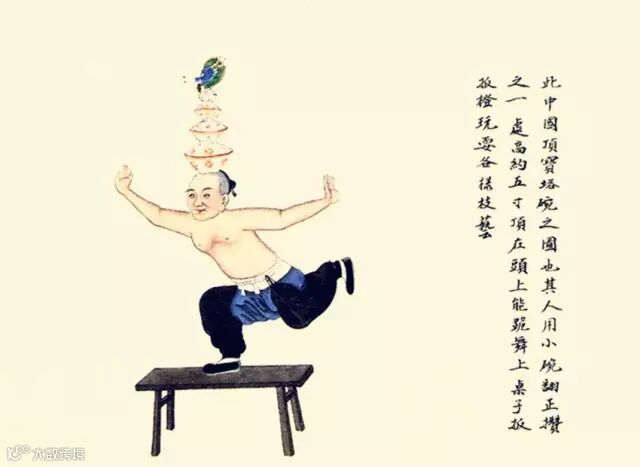 此中國頂寶塔碗之圖也其人用小碗翻正攢
之一處高約五寸頂在頭上能跪舞上桌子扳
扳橙玩耍各樣技藝
大数跨境